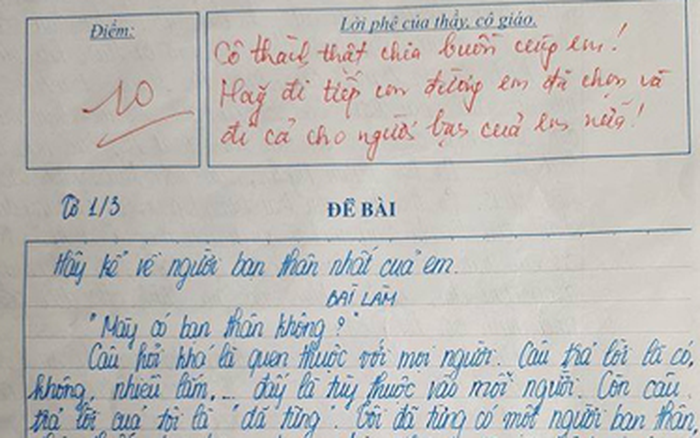 Điểm:
Lời phê của thầy, cô giáo.
10
Cô thành thật chia buồn cùng em!
Hãy đi tiếp con đường em đã chọn và
đi cả cho người bạn của em nữa!
Tờ 1/3
ĐỀ BÀI
Hãy kể về người bạn thân nhất của em.
BÀI LÀM
"Mày có bạn thân không?"
Câu hỏi khá là quen thuộc với mọi người. Câu trả lời là có,
không, nhiều lắm,... đấy là tùy thuộc vào mỗi người. Còn câu
trả lời của tôi là "đã từng". Tôi đã từng có một người bạn thân,